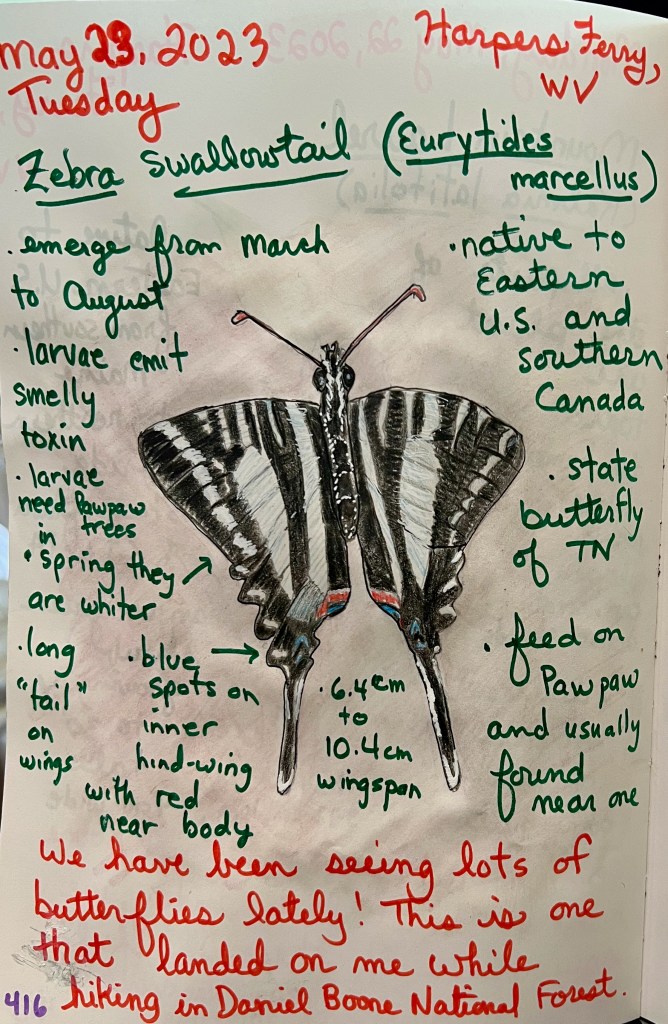 May 23, 2023
Tuesday
Harpers Ferry,
WV
Zebra Swallowtail (Eurytides
marcellus)
• emerge from March
to August
• larvae emit
smelly
toxin
• larvae
need Pawpaw
in trees
• spring they
are whiter
• long
"tail"
on
wings
• blue
spots on
inner
hind-wing
with red
near body
• 6.4cm
to
10.4cm
wingspan
• native to
Eastern
U.S. and
southern
Canada
• state
butterfly
of TN
• feed on
Pawpaw
and usually
found
near one
We have been seeing lots of
butterflies lately! This is one
that landed on me while
hiking in Daniel Boone National Forest.
416